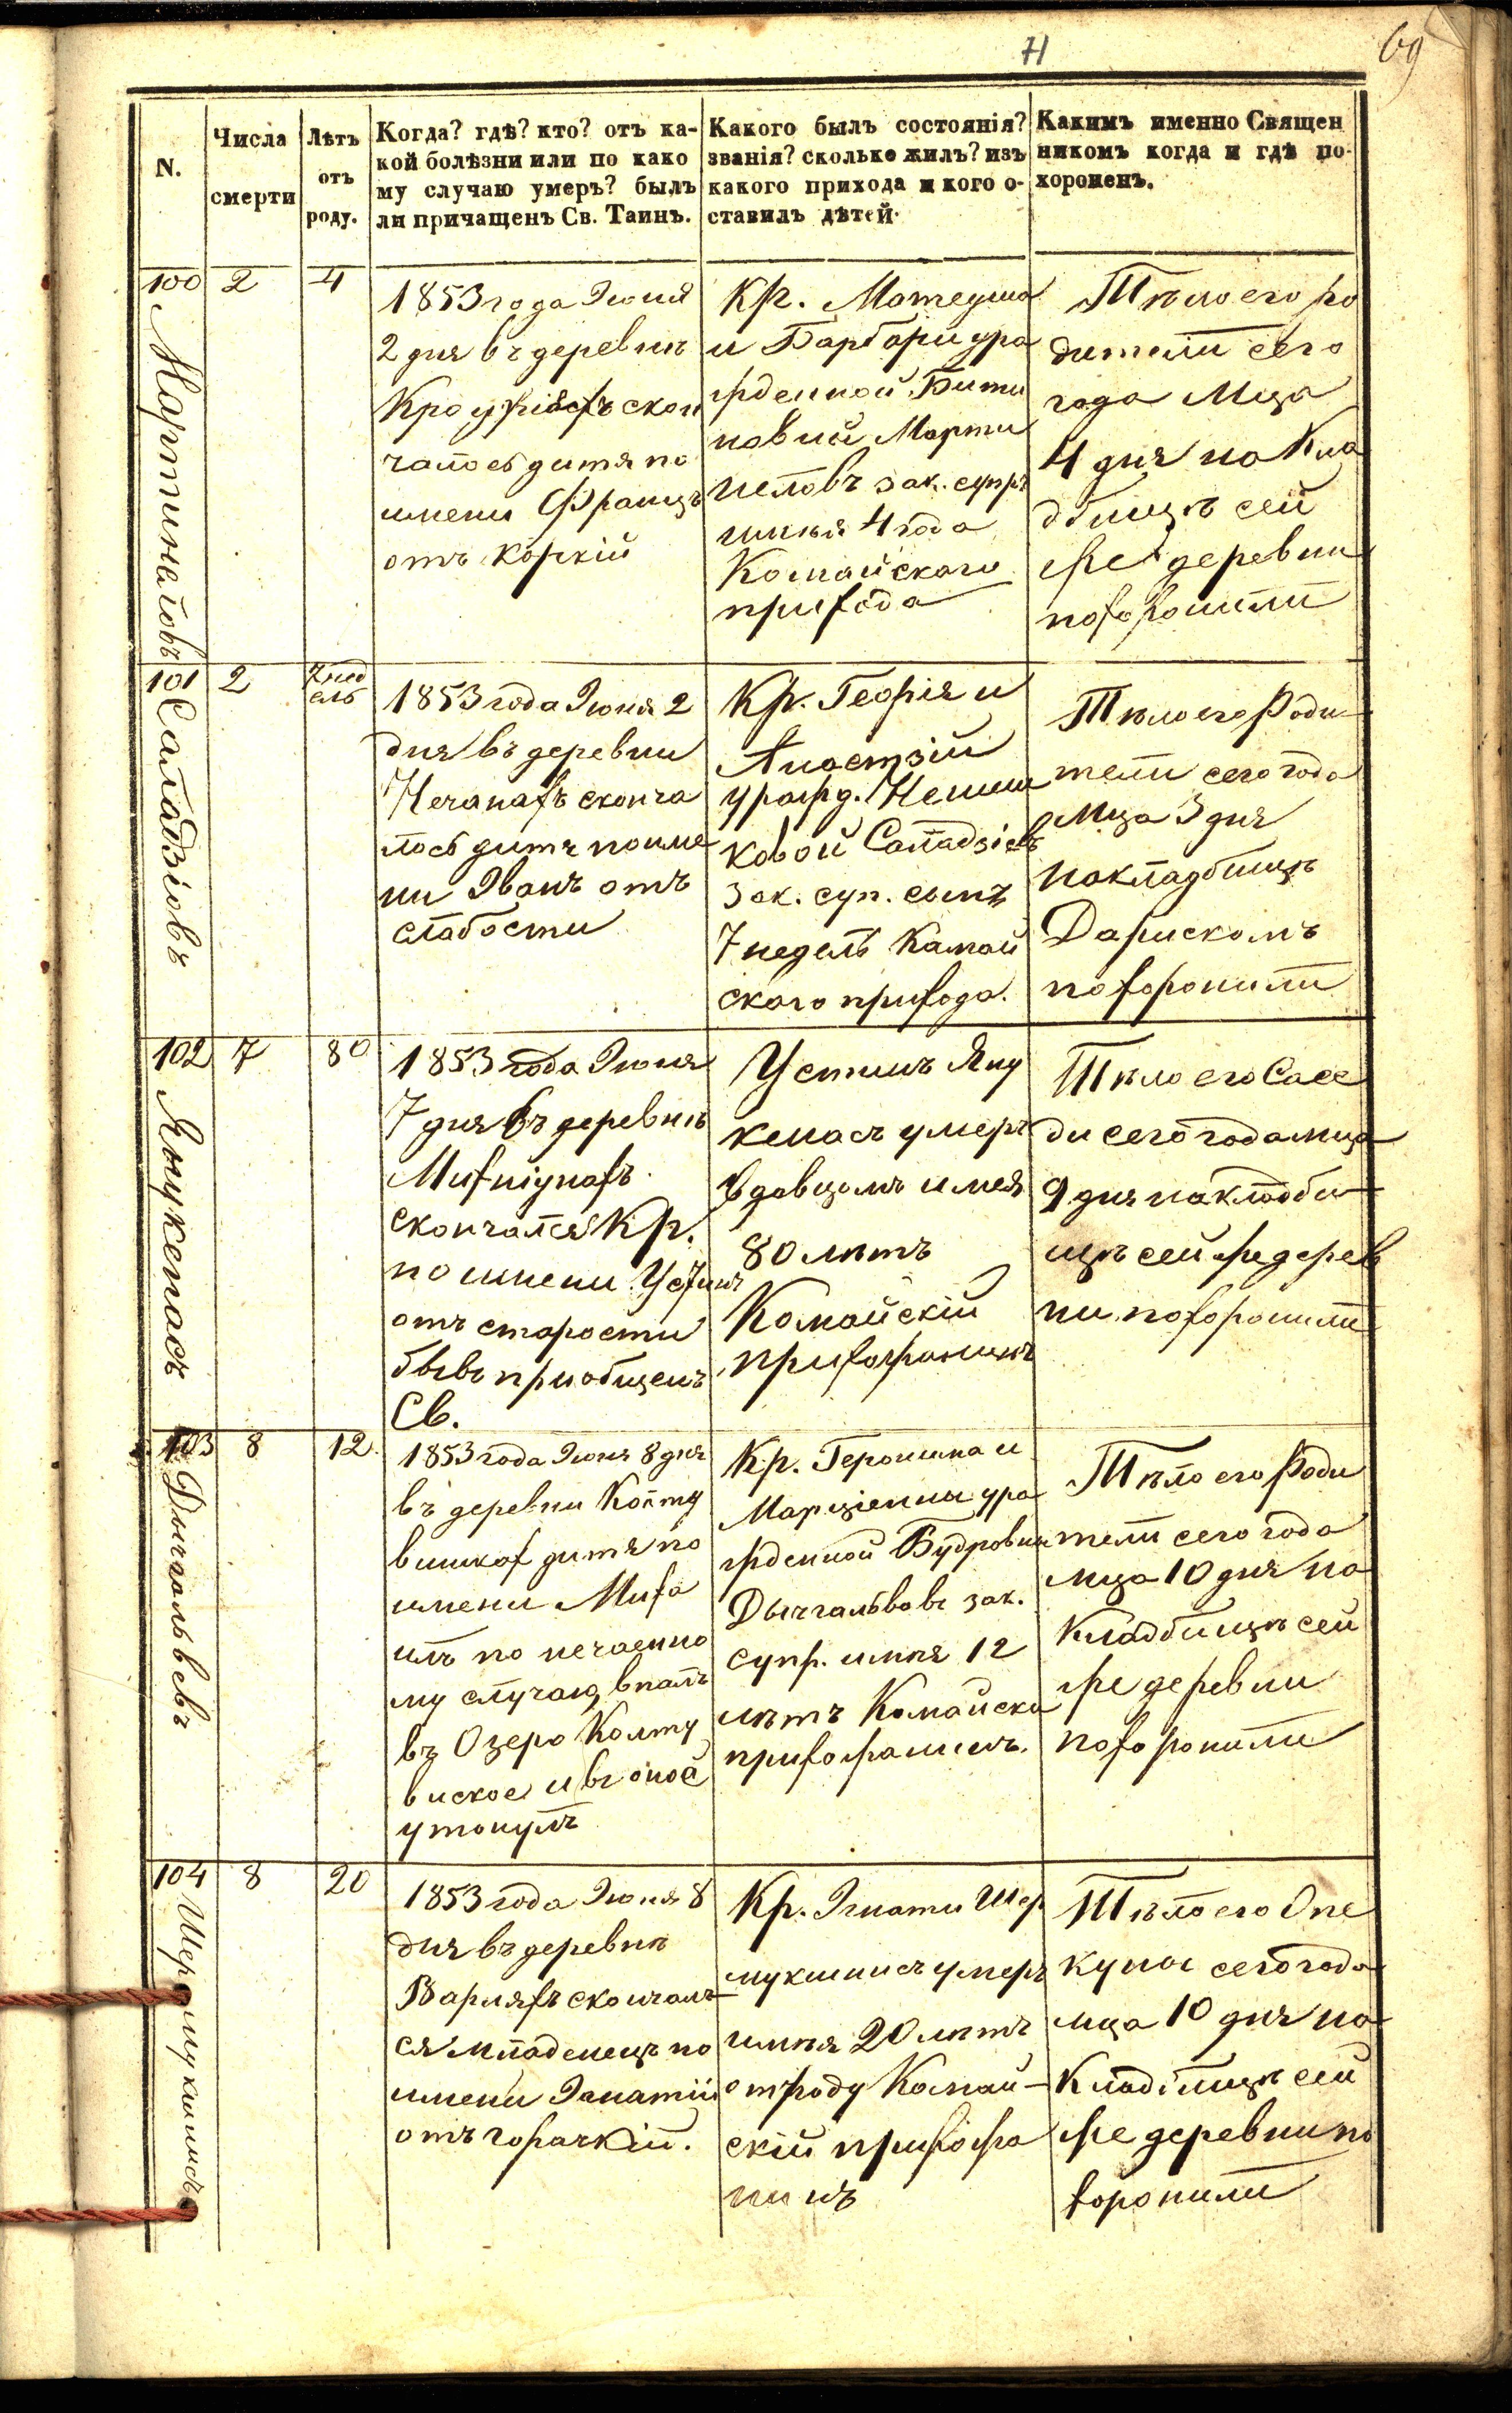 71
69
N.
Числа
смерти
Лѣтъ
отъ
роду.
Когда? гдѣ? кто? отъ ка-
кой болѣзни или по како
му случаю умеръ? былъ
ли причащенъ Св. Таинъ.
Какого былъ состоянія?
званія? сколько жилъ? изъ
какого прихода и кого о-
ставилъ дѣтей.
Какимъ именно Священ
никомъ когда и гдѣ по-
хороненъ.
100
Мартинайтовъ
2
4
1853 года Іюня
2 дня въ деревнѣ
скон
чалось дитя по
имени Францъ
отъ коркій
Кр. Матеуша
и Барбари ура
жденной Бити
новной Марти
зак. супр
имѣя 4 года
Комайскаго
прихода
Тѣло его ро
дители сего
года Мца
4 дня на Кла
дбищѣ сей
же деревни
похоронили
101
Саладзіовъ
2
7 нед
ель
1853 года Іюня 2
дня въ деревни
Нечанахъ сконча
лось дитя по име
ни Иванъ отъ
слабости
Кр. Георгія и
Анастзіи
уражд.
ковой Саладзіовъ
зак. суп. сынъ
7 недель Камай
скаго прихода.
Тѣло его Роди
тели сего года
Мца 3 дня
на кладбищѣ
Дарискомъ
похоронили
102
Янукенасъ
7
80
1853 года Іюня
7 дня въ деревнѣ
Михніунахъ
скончался Кр.
по имени Устинъ
отъ старости
бывъ приобщенъ
Св.
Устинъ Яну
кенасъ умеръ
вдовцомъ имея
80 лѣтъ
Комайскій
прихожанинъ
Тѣло его Сосе
ди сего года мца
9 дня на кладби
щѣ сей же дерев
ни похоронили
103
Дычгальвевъ
8
12
1853 года Іюня 8 дня
въ деревни Колту
вишках дитя по
имени Миха
илъ по нечаенно
му случаю, впалъ
въ Озеро Колту
виское и въ оное
утонулъ
Кр. Геронима и
Марціенны ура
жденной Будровны
Дычгальвовъ зак.
супр. имѣя 12
лѣтъ Комайски
прихожанинъ.
Тѣло его Роди
тели сего года
мца 10 дня на
Кладбищѣ сей
же деревни
похоронили
104
Шермукшнисъ
8
20
1853 года Іюня 8
дня въ деревнѣ
Варляхъ скончал
ся младенецъ по
имени Игнатій
отъ горачкій.
Кр. Игнати Шер
мукшнисъ умеръ
имѣя 20 лѣтъ
отъ роду Комай-
скій прихожа
нинъ
Тѣло его Опе
куны сего года
мца 10 дня на
Кладбищѣ сей
же деревни по
хоронили